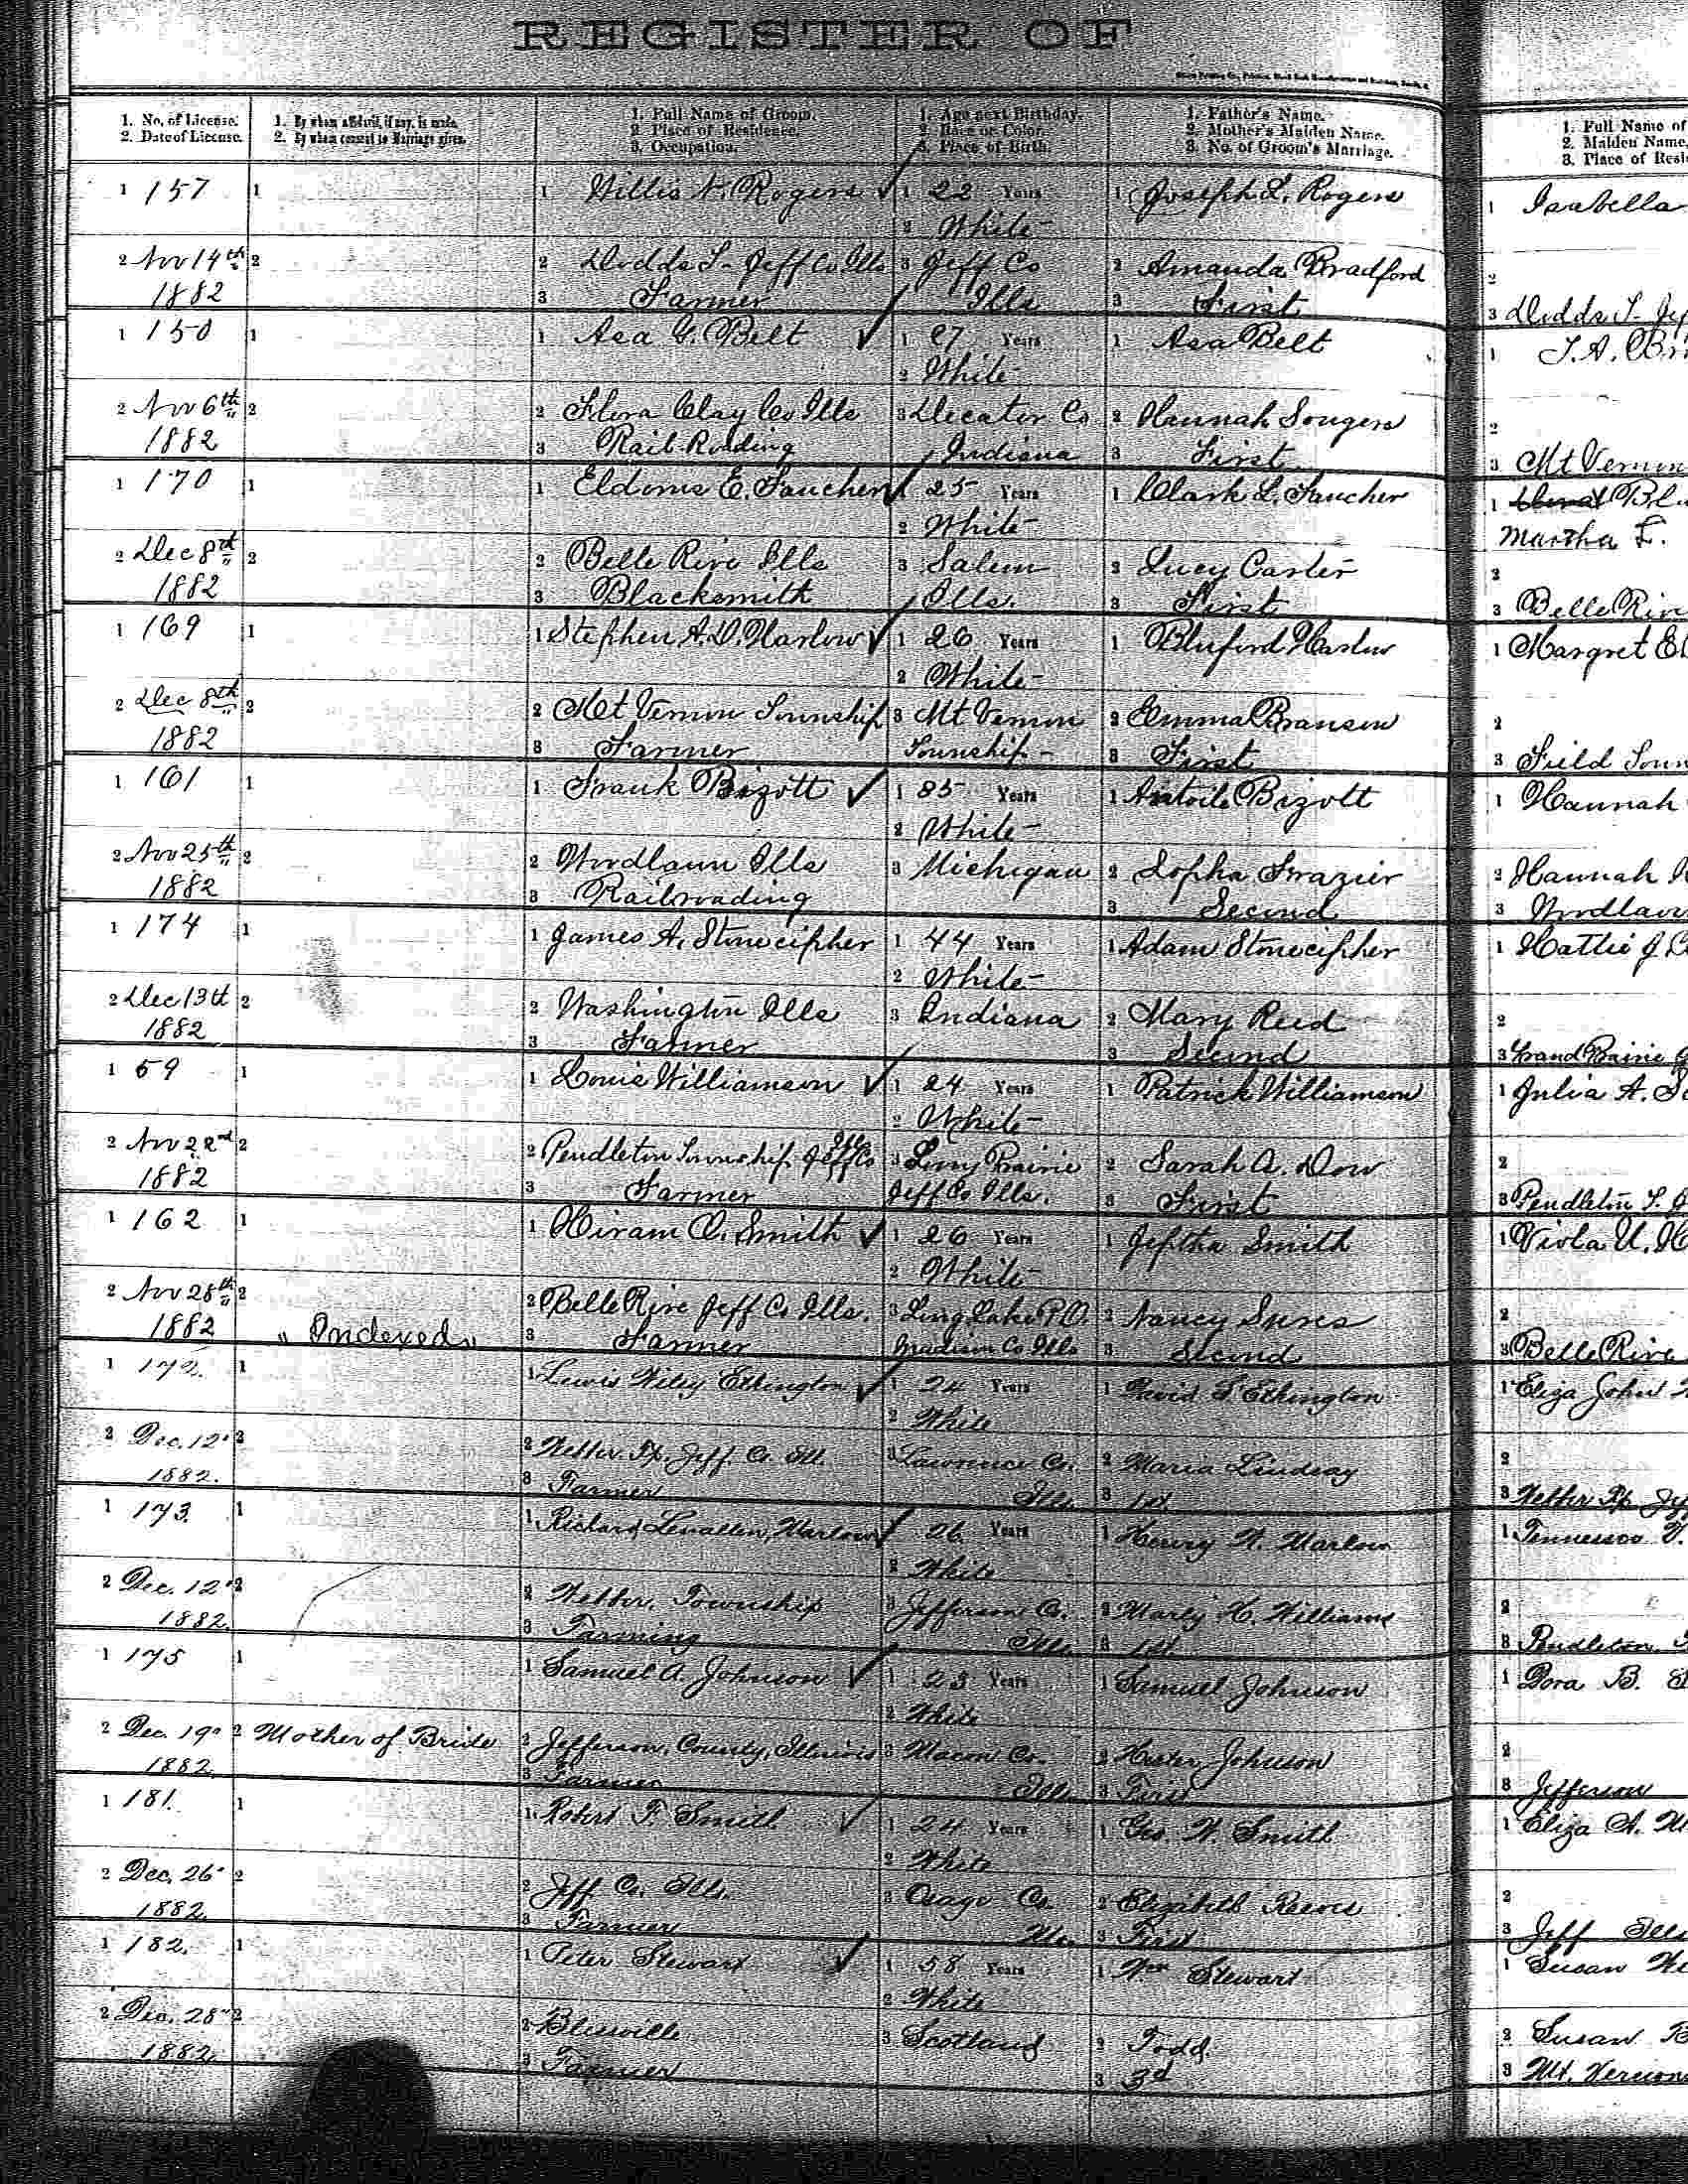 REGISTER OF
1. No. of License.
2. Date of License.
1. By whom affidavit, if any, is made.
2. By whom consent to Marriage given.
1. Full Name of Groom.
2. Place of Residence.
3. Occupation.
1. Age next Birthday.
2. Race or Color.
3. Place of Birth.
1. Father's Name.
2. Mother's Maiden Name.
3. No. of Groom's Marriage.
1. Full Name of
2. Maiden Name,
3. Place of Resi
1 157 1 1 Willis N. Rogers 1 22 Years 1 Joseph L. Rogers 1 Isabella
2 White
2 Nov 14th 2 2 Dodds T- Jeff Co Ills 3 Jeff Co 2 Amanda Bradford 2
1882 3 Farmer Ills 3 First 3 Dodds T- Jef
1 150 1 1 Asa G. Belt 1 27 Years 1 Asa Belt 1 T.A. Bri
2 White
2 Nov 6th 2 2 Flora Clay Co Ills 3 Decatur Co 2 Hannah Songers 2
1882 3 Rail-Roading Indiana 3 First 3 Mt Vernon
1 170 1 1 Eldonis E. Faucher 1 25 Years 1 Clark L. Faucher 1
2 White Martha E.
2 Dec 8th 2 2 Belle Rive Ills 3 Salem 2 Lucy Carter 2
1882 3 Blacksmith Ills. 3 First 3 Belle Riv
1 169 1 1 Stephen A.D. Harlow 1 26 Years 1 Bluford Harlow 1 Margret El
2 White
2 Dec 8th 2 2 Mt Vernon Township 3 Mt Vernon 2 Emma Branson 2
1882 3 Farmer Township 3 First 3 Field Town
1 161 1 1 Frank Bizott 1 35 Years 1 Antoile Bizott 1 Hannah
2 White
2 Nov 25th 2 2 Woodlawn Ills 3 Michigan 2 Sopha Frazier 2 Hannah
1882 3 Railroading 3 Second 3 Woodlawn
1 174 1 1 James A. Stonecipher 1 44 Years 1 Adam Stonecipher 1 Hattie J
2 White
2 Dec 13th 2 2 Washington Ills 3 Indiana 2 Mary Reed 2
1882 3 Farmer 3 Second 3 Grand Prairie
1 59 1 1 Louis Williamson 1 24 Years 1 Patrick Williamson 1 Julia A.
2 White
2 Nov 22nd 2 2 Pendleton Township Jeff Co Ills 3 Long Prairie 2 Sarah A. Dow 2
1882 3 Farmer Jeff Co Ills. 3 First 3 Pendleton T.
1 162 1 1 Hiram O. Smith 1 26 Years 1 Jeptha Smith 1 Viola U.
2 White
2 Nov 28th 2 2 Belle Rive Jeff Co Ills. 3 Long Lake P.O. 2 Nancy Sures 2
1882 " Indexed " 3 Farmer Madison Co Ills 3 Second 3 Belle Rive
1 172. 1 1 Lewis Wiley Ethington 1 24 Years 1 David S. Ethington 1 Eliza John
2 White
2 Dec. 12" 2 2 Webber. Tp. Jeff. Co. Ill. 3 Lawrence Co. 2 Maria Lindsay 2
1882. 3 Farmer Ills. 3 1st. 3 Webber Tp Jef
1 173. 1 1 Richard Lewallen, Harlow 1 26 Years 1 Henry W. Harlow 1 Tennessee
2 White
2 Dec. 12" 2 2 Webber. Township 3 Jefferson Co. 2 Marly H. Williams 2
1882. 3 Farming Ills. 3 1st. 3 Pendleton,
1 175 1 1 Samuel A. Johnson 1 23 Years 1 Samuel Johnson 1 Dora B.
2 White
2 Dec. 19" 2 Mother of Bride 2 Jefferson, County, Illinois 3 Macon Co. 2 Hester Johnson 2
1882. 3 Farmer Ills. 3 First 3 Jefferson
1 181. 1 1 Robert F. Smith 1 24 Years 1 Geo. W. Smith 1 Eliza A.
2 White
2 Dec. 26" 2 2 Jeff Co. Ills. 3 Osage Co. 2 Elizabeth Reeves 2
1882. 3 Farmer Mo. 3 First 3 Jeff Ills
1 182. 1 1 Peter Stewart 1 58 Years 1 Wm Stewart 1 Susan
2 White
2 Dec. 28" 2 2 Blissville 3 Scotland 2 Todd. 2 Susan
1882. 3 Farmer 3 3d 3 Mt. Vernon